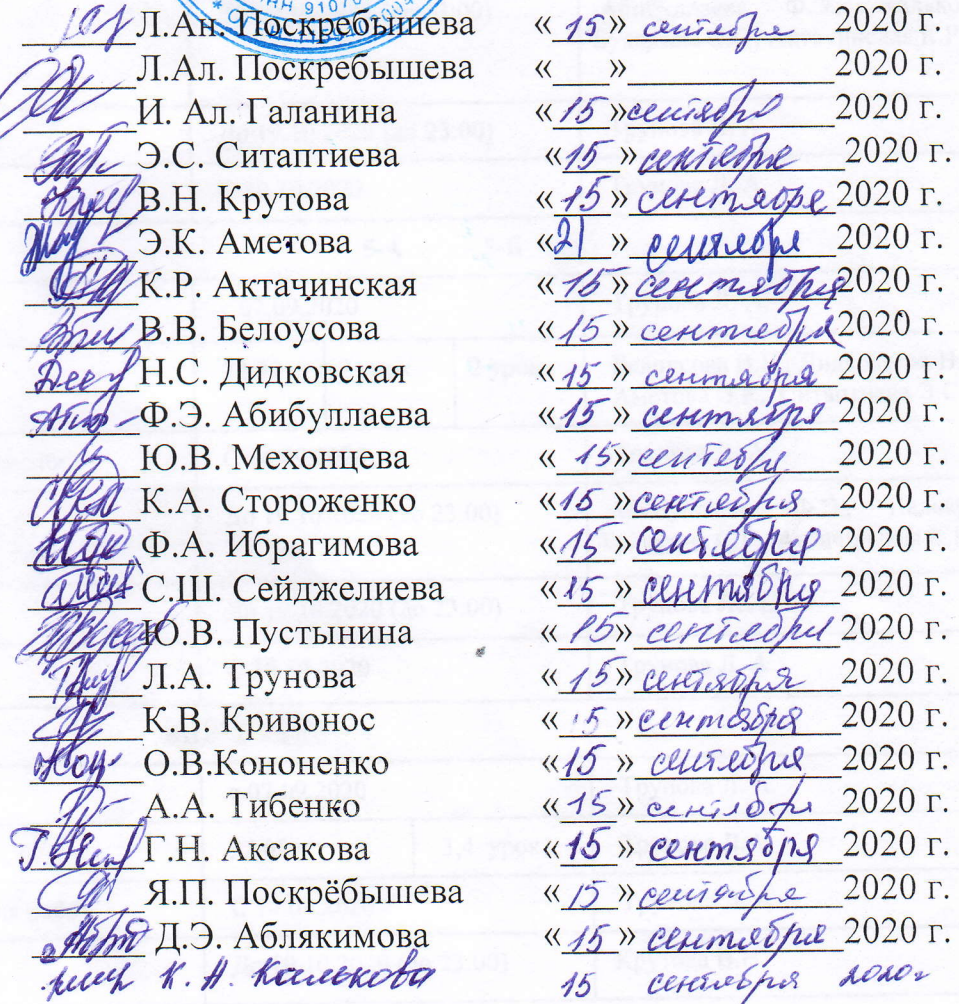 Л.Ан. Поскребышева « 15 » сентября 2020 г.
Л.Ал. Поскребышева « » 2020 г.
И. Ал. Галанина « 15 » сентября 2020 г.
Э.С. Ситаптиева « 15 » сентября 2020 г.
В.Н. Крутова « 15 » сентября 2020 г.
Э.К. Аметова « 21 » сентября 2020 г.
К.Р. Актачинская « 15 » сентября 2020 г.
В.В. Белоусова « 15 » сентября 2020 г.
Н.С. Дидковская « 15 » сентября 2020 г.
Ф.Э. Абибуллаева « 15 » сентября 2020 г.
Ю.В. Мехонцева « 15 » сентября 2020 г.
К.А. Стороженко « 15 » сентября 2020 г.
Ф.А. Ибрагимова « 15 » сентября 2020 г.
С.Ш. Сейджелиева « 15 » сентября 2020 г.
Ю.В. Пустынина « 15 » сентября 2020 г.
Л.А. Трунова « 15 » сентября 2020 г.
К.В. Кривонос « 15 » сентября 2020 г.
О.В.Кононенко « 15 » сентября 2020 г.
А.А. Тибенко « 15 » сентября 2020 г.
Г.Н. Аксакова « 15 » сентября 2020 г.
Я.П. Поскрёбышева « 15 » сентября 2020 г.
Д.Э. Аблякимова « 15 » сентября 2020 г.
К. Н. Калькова 15 сентября 2020г